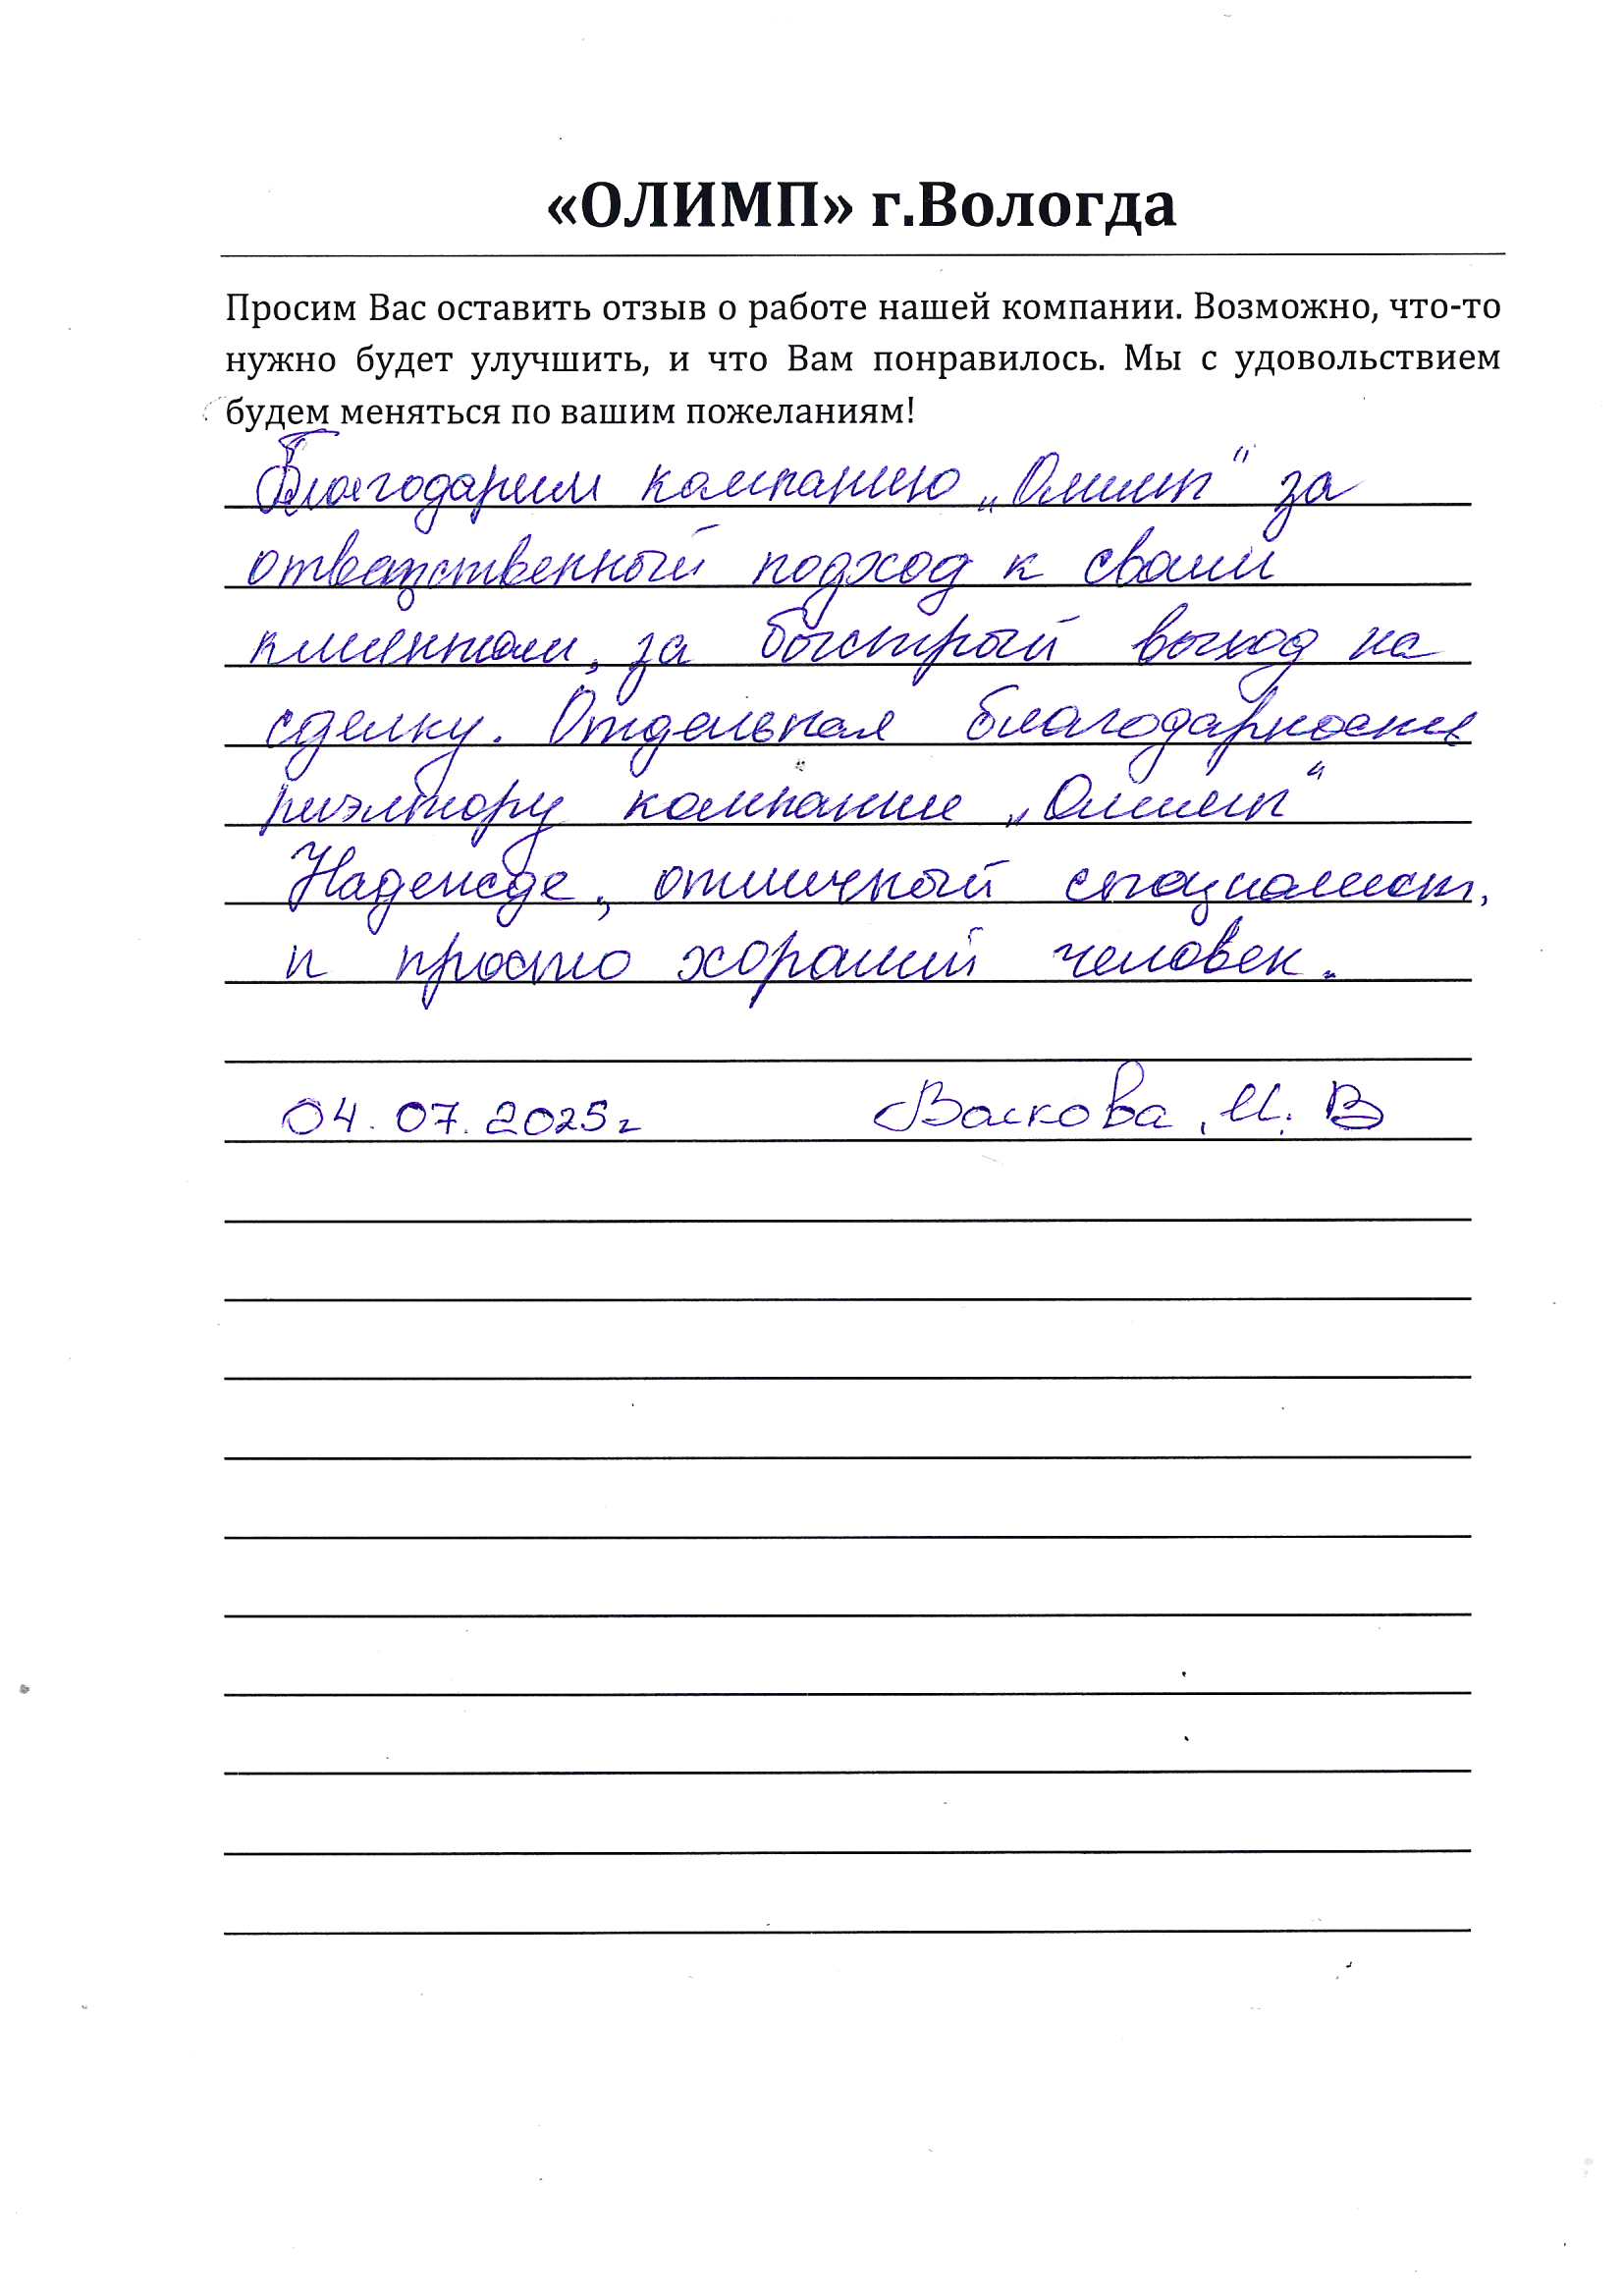 «ОЛИМП» г.Вологда
Просим Вас оставить отзыв о работе нашей компании. Возможно, что-то
нужно будет улучшить, и что Вам понравилось. Мы с удовольствием
будем меняться по вашим пожеланиям!
Благодарим компанию „Олимп“ за
ответственный подход к своим
клиентам, за быстрый выход на
сделку. Отдельная благодарность
риэлтору компании „Олимп“
Надежде, отличный специалист,
и просто хороший человек.
04.07.2025г Васкова, И. В